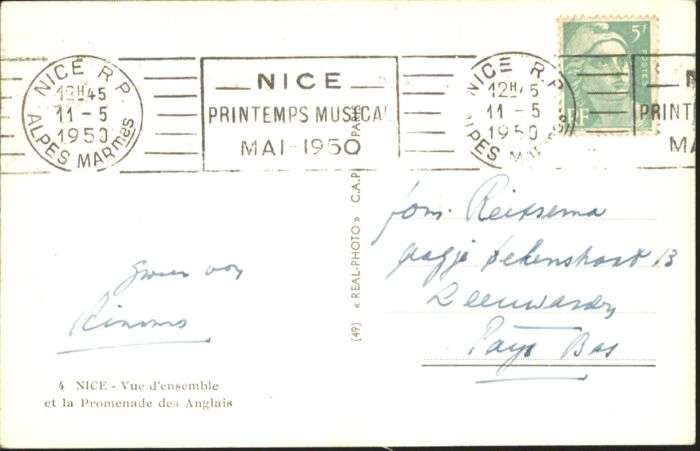 NICE R.P.
12H45
11-5
1950
ALPES MARmes
NICE
PRINTEMPS MUSICAL
MAI-1950
NICE R.P.
12H45
11-5
1950
ALPES MARmes
N
PRINT
MA
5F
RF
(49) « REAL-PHOTO » C.A.P. PARIS
fam. Reitsema
13
Leeuwarden
Pays Bas
4 NICE - Vue d'ensemble
et la Promenade des Anglais